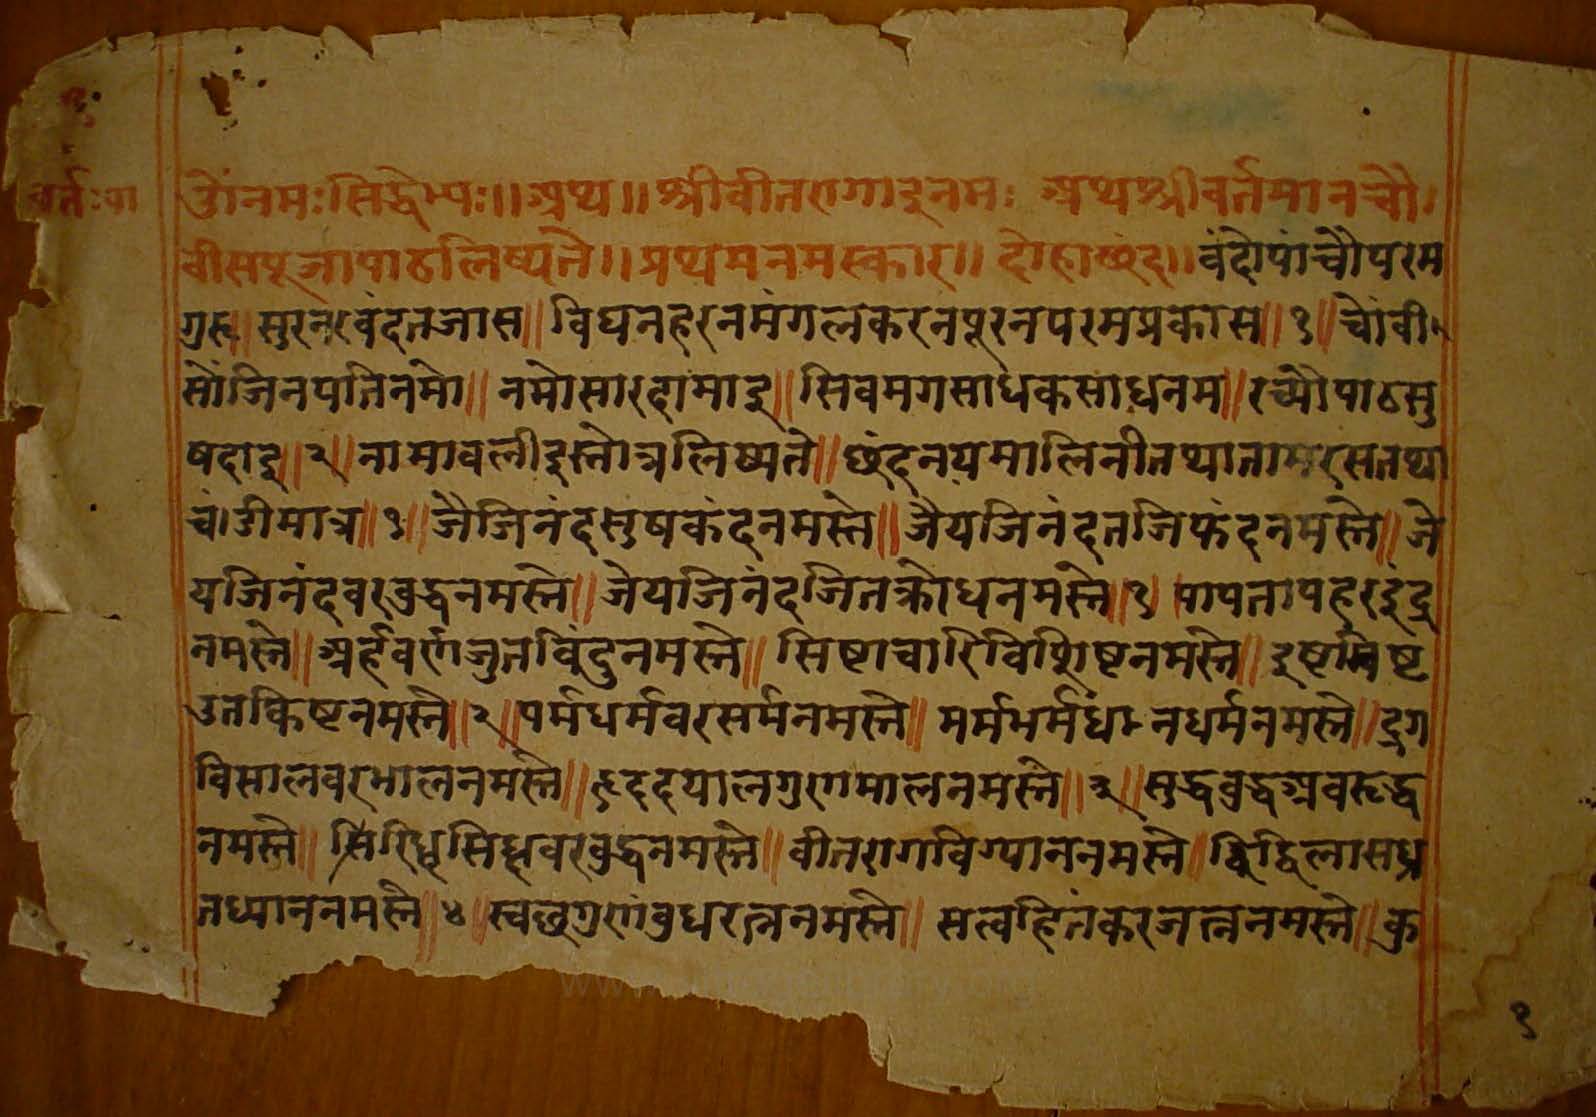 ओंनमःसिद्धेभ्यः॥ अथ॥ श्रीवीतरागाइनमः अथश्रीवर्तमानचौ
वीसपूजापाठलिष्यते॥ प्रथमनमस्कार॥ दोहाछंद॥ वंदोपांचौपरम
गुरू॥ सुरनरवंदतजास॥ विघनहरनमंगलकरनपूरनपरमप्रकास॥ १॥ चोवी
सोंजिनपतिनमो॥ नमोसारदामाइ॥ सिवमगसाधकसाधनम॥ रच्योपाठसु
षदाइ॥ २॥ नामावलीइस्तोत्रलिष्यते॥ छंदनयमालिनीतथातामरसतथा
चंडीमात्र॥ १॥ जैजिनंदसुषकंदनमस्ते॥ जैयजिनंदतजिफंदनमस्ते॥ जे
यजिनंदवरवुद्धनमस्ते॥ जेयजिनंदजितक्रोधनमस्ते॥ १ पापतापहरइंदु
नमस्ते॥ अर्हवर्णजुतविंदुनमस्ते॥ सिष्टाचारिविशिष्टनमस्ते॥ इष्टमिष्ट
उतकिष्टनमस्ते॥ २॥ पर्मधर्मवरसर्मनमस्ते॥ मर्मभर्मधानधर्मनमस्ते॥ द्रग
विसालवरभालनमस्ते॥ हृददयालगुणमालनमस्ते॥ ३॥ सुद्धवुद्धअवरुद्ध
नमस्ते॥ रिधिसिधिवरवुद्धनमस्ते॥ वीतरागविग्याननमस्ते॥ चिद्विलासध्र
तध्याननमस्ते॥ ४॥ स्वछगुणांवुधरत्ननमस्ते॥ सत्वहितंकरजत्ननमस्ते॥ कु
१